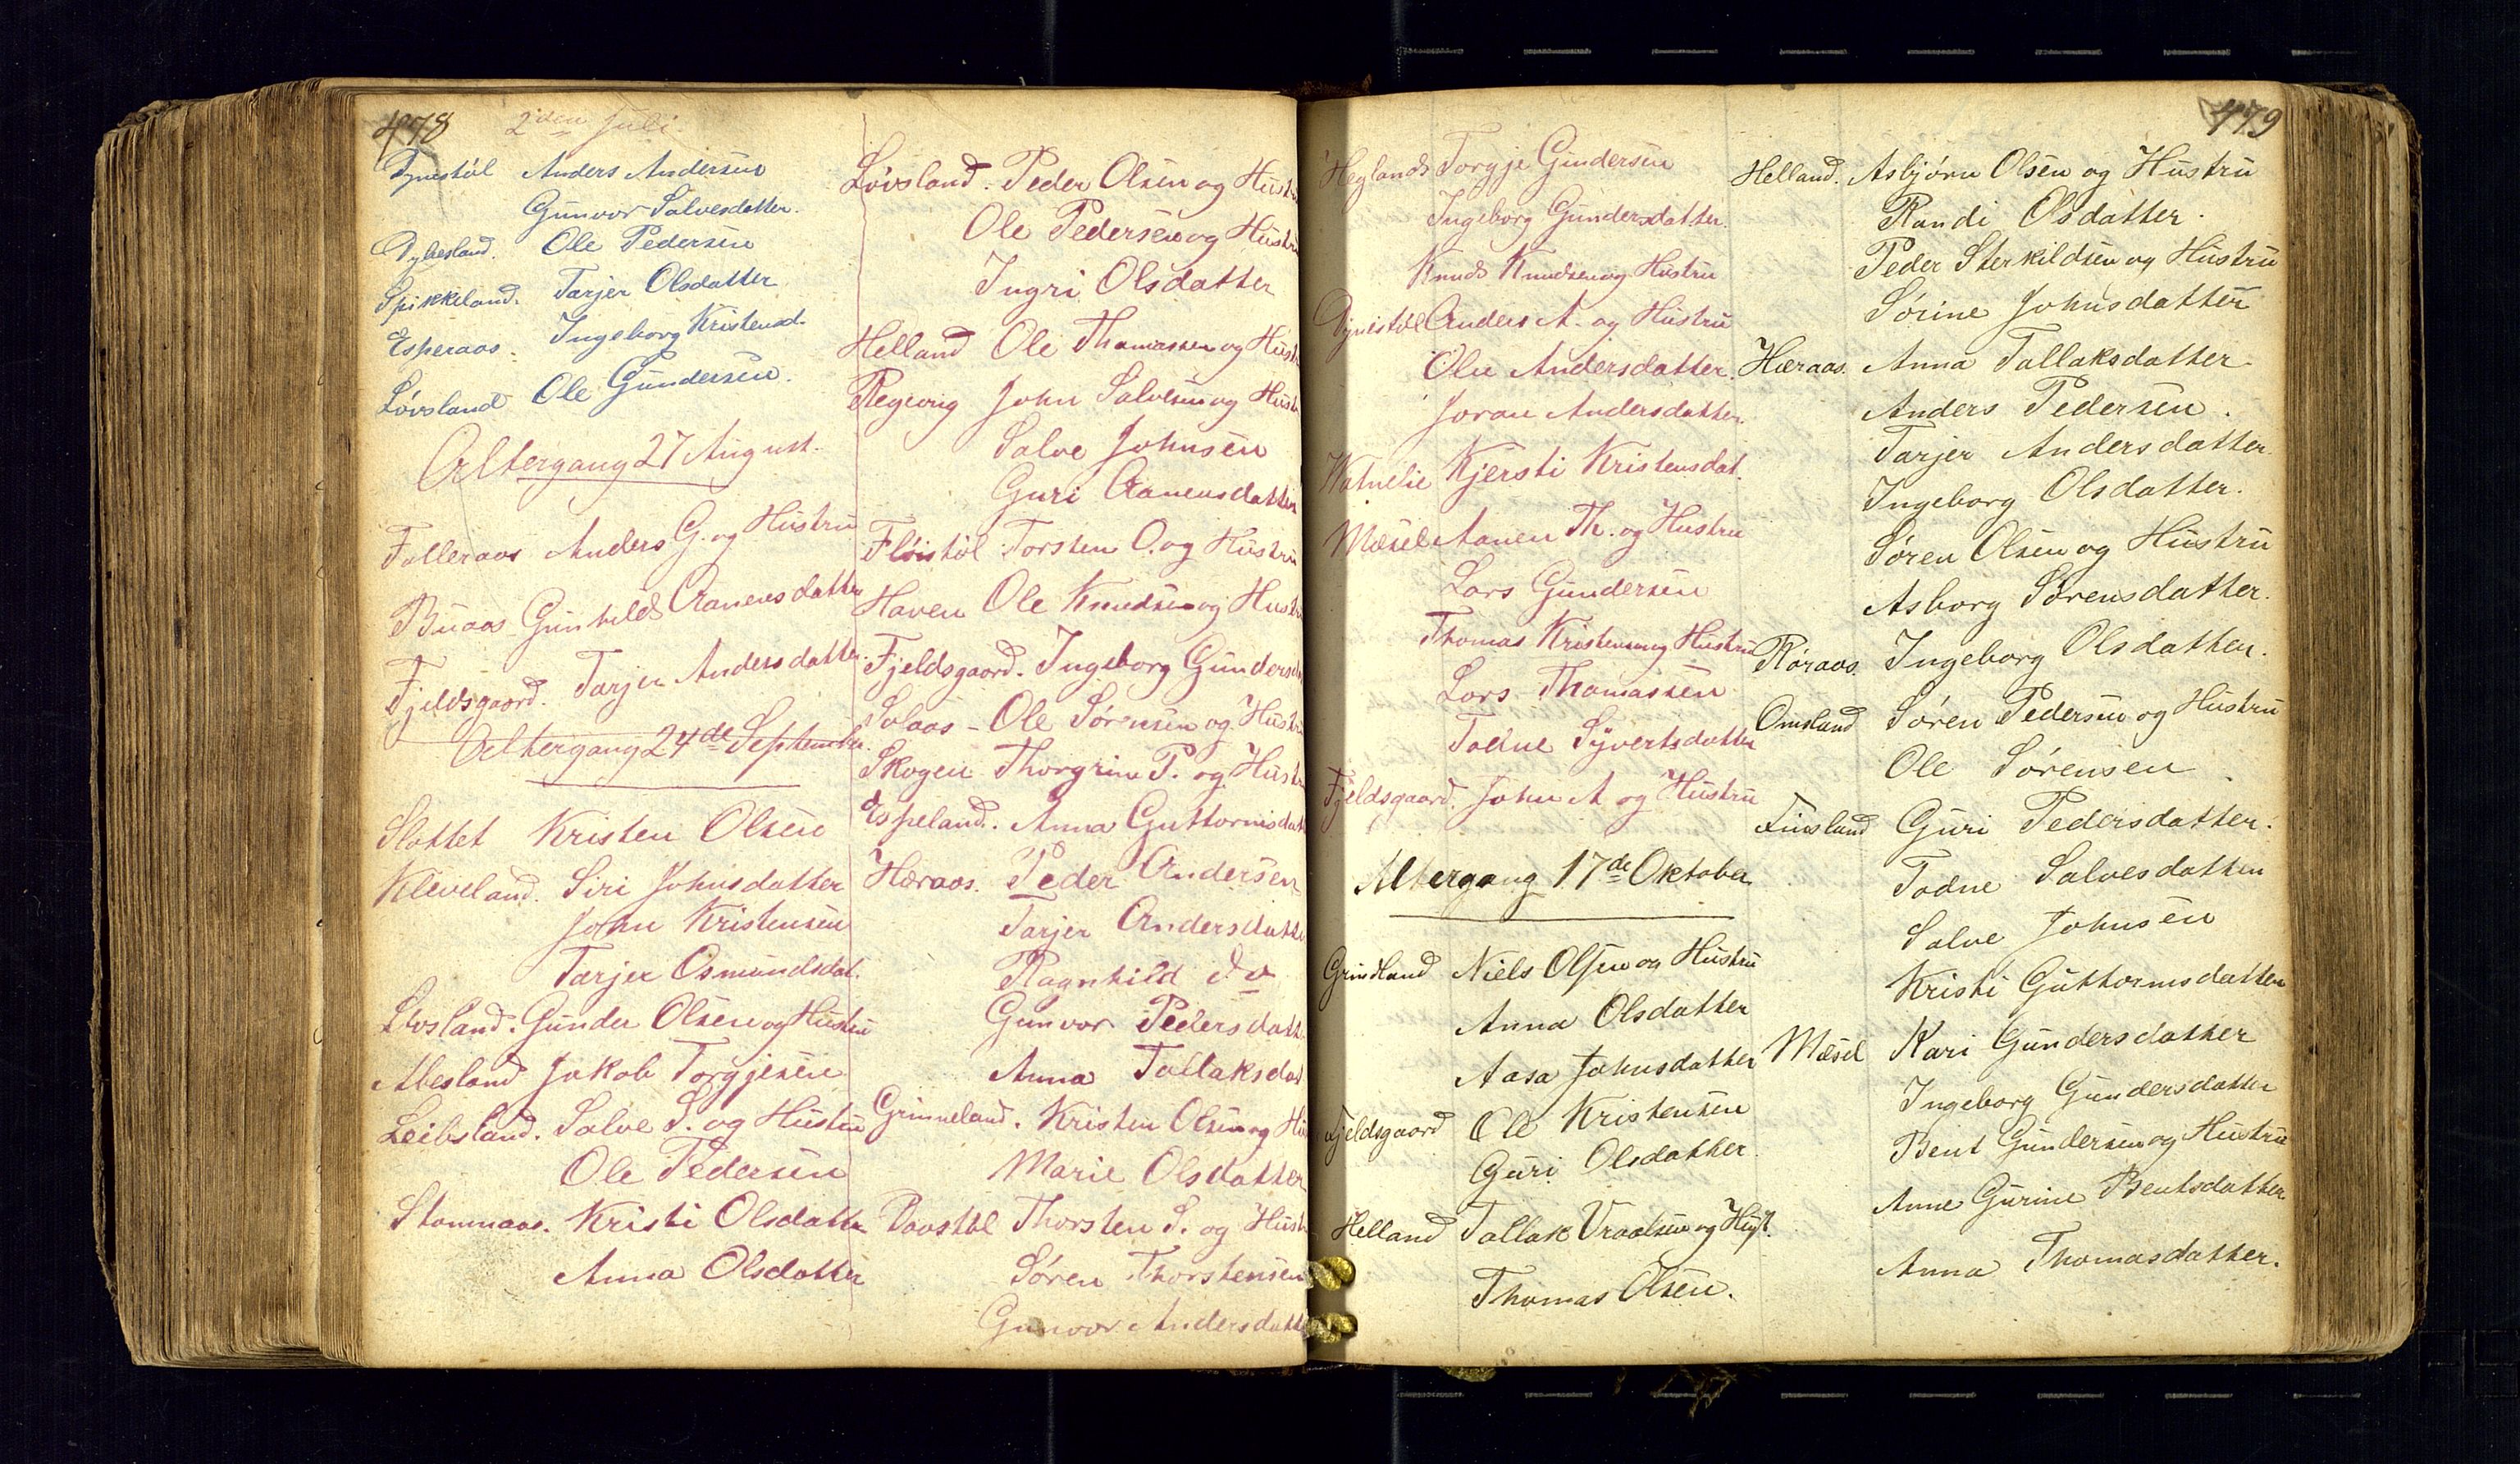 478 2den Juli.
Dynestøl Anders Andersen
Gunvor Salvesdatter.
Dybesland. Ole Pedersen
Spikkeland. Tarjer Olsdatter
Esperaas. Ingeborg Kristensd.
Løvsland Ole Gundersen.
Altergang 27 August.
Falleraas Anders G. og Hustru
Buaas Gunhild Aanensdatter
Fjeldsgaard. Tarjer Andersdatter.
Altergang 24de September.
Slottet Kristen Olsen
Kleveland. Siri Johnsdatter
John Kristensen
Tarjer Osmundsdat.
Løvsland. Gunder Olsen og Hustru
Abesland Jakob Torgjesen
Leibsland. Salve S. og Hustru
Ole Pedersen
Stommaas. Kristi Olsdatter
Anna Olsdatter
Løvsland. Peder Olsen og Hustru
Ole Pedersen og Hustru
Ingri Olsdatter
Helland Ole Thomassen og Hustr
Regevig John Salvesen og Hustr
Salve Johnsen
Guri Aanensdatter
Fløistøl Torsten O. og Hustru
Haven Ole Knudsen og Hustr
Fjeldsgaard. Ingeborg Gundersd
Solaas - Ole Sørensen og Hustru
Skogen Thorgrim P. og Hustr
Espeland. Anna Guttormsdat
Hæraas. Peder Andersen
Tarjer Andersdatte
Ragnhild do
Gunvor Pedersdatt
Anna Tallaksdat
Grinneland. Kristen Olsen og Hu
Marie Olsdatter
Daastøl Thorsten S. og Hustr
Søren Thorstensen
Gunvor Andersdatt
479
Heglands Torgje Gundersen
Ingeborg Gundersdatter.
Knud Knudsen og Hustru
Dynestøl Anders A. og Hustru
Olu Andersdatter.
Joran Andersdatter.
Vatnelie Kjersti Kristensdat.
Mæsel Aanen Th. og Hustru
Lars Gundersen
Thomas Kristensen og Hustru
Lars Thomassen
Todne Syvertsdatter
Fjeldsgaard. John A og Hustru
Altergang 17de Oktober
Grindland Niels Olsen og Hustru
Anna Olsdatter
Aasa Johnsdatter
Fjeldsgaard Ole Kristensen
Guri Olsdatter.
Helland Tallak Vraalsen og Hust.
Thomas Olsen.
Helland. Asbjørn Olsen og Hustru
Randi Olsdatter.
Peder Sterkildsen og Hustru
Sørine Johnsdatter
Hæraas. Anna Tallaksdatter
Anders Pedersen.
Tarjer Andersdatter.
Ingeborg Olsdatter.
Søren Olsen og Hustru
Asborg Sørensdatter.
Røraas. Ingeborg Olsdatter.
Omsland Søren Pedersen og Hustru
Ole Sørensen.
Finsland Guri Pedersdatter.
Todne Salvesdatter
Salve Johnsen
Kristi Guttormsdatter
Mæsel Kari Gundersdatter
Ingeborg Gundersdatter
Bent Gundersen og Hustru
Anne Gurine Bentsdatter.
Anna Thomasdatter.